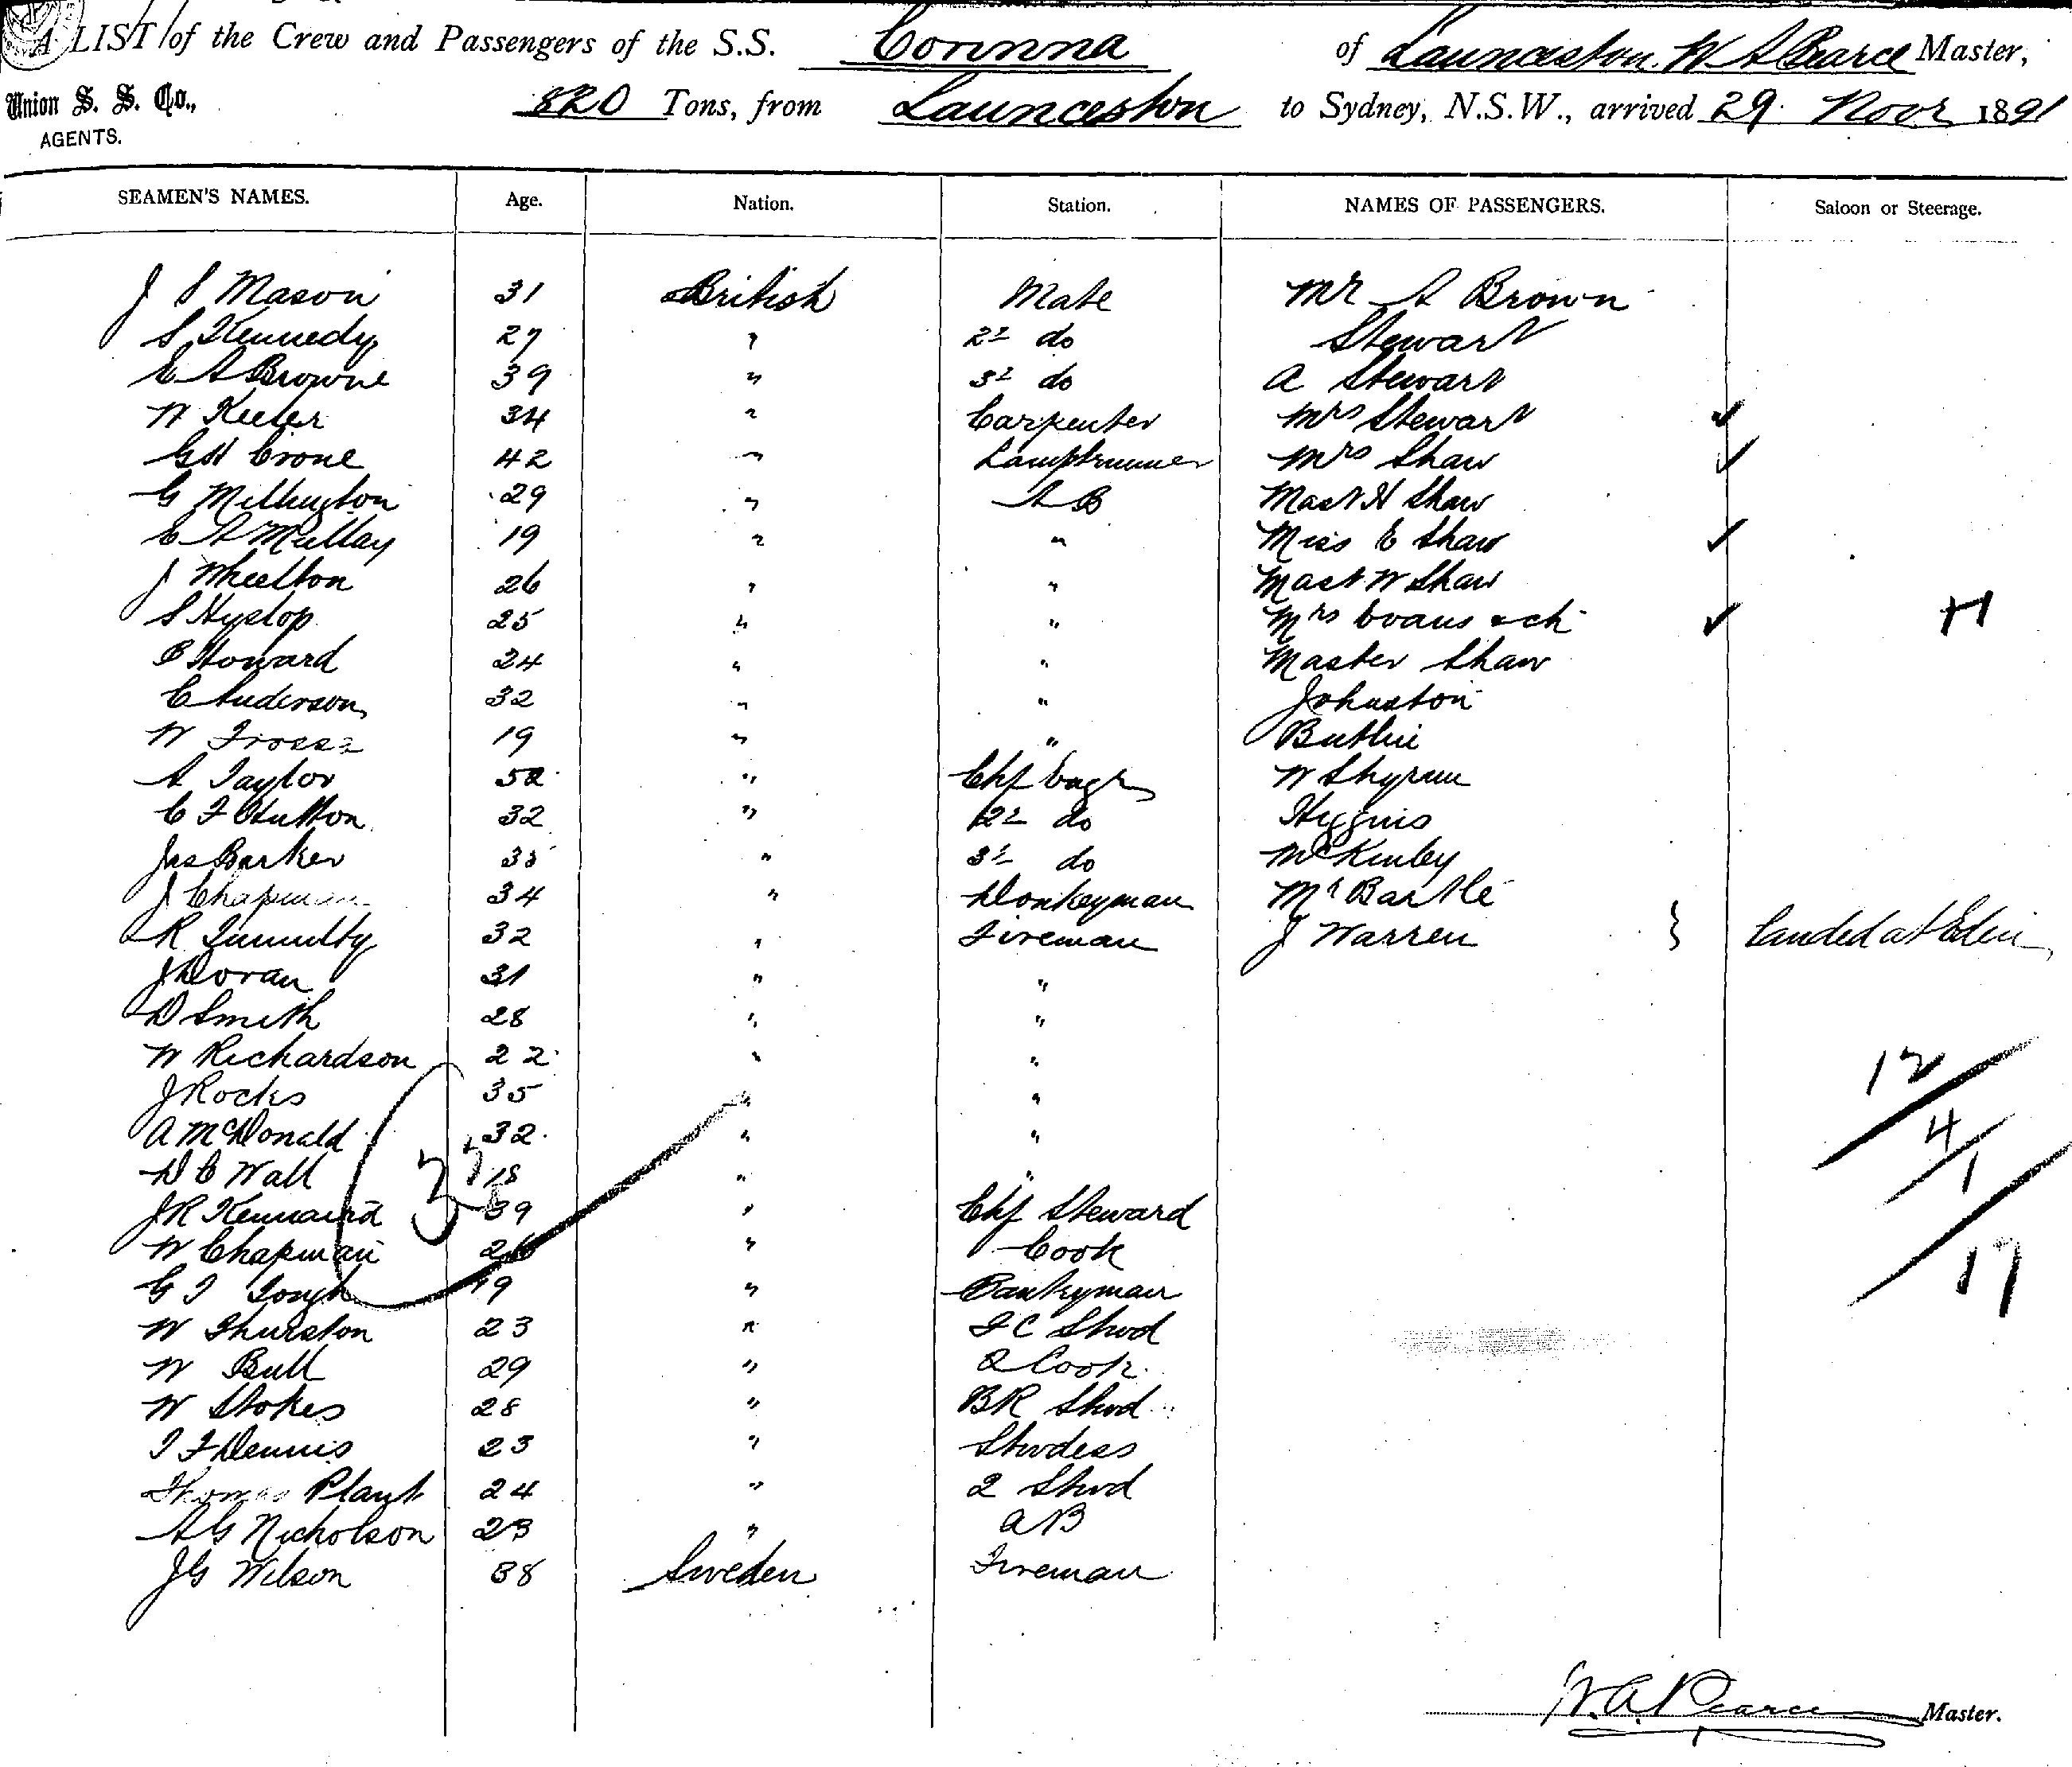 A LIST of the Crew and Passengers of the S.S. Corinna of Launceston. W A Pearce Master,
Union S. S. Co., 820 Tons, from Launceston to Sydney, N.S.W., arrived 29. Novr 1891
AGENTS.
SEAMEN'S NAMES. Age. Nation. Station. NAMES OF PASSENGERS. Saloon or Steerage.
J S Mason 31 British Mate Mr A Brown
S Kennedy 27 " 2d do Stewart
E A Browne 39 " 3d do A Stewart
W Keeler 34 " Carpenter Mrs Stewart ✓
G H Crone 42 " Lamptrimmer Mrs Shaw ✓
G Millington 29 " A B Mast H Shaw
E A Mullay 19 " " Miss E Shaw ✓
J Wheelton 26 " " Mast W Shaw
S Hyslop 25 " " Mrs Evans & ch ✓
Howard 24 " " Master Shaw
C Anderson 32 " " Johnston
W 19 " " Butlin
A Taylor 52 " Chf Engr W
C F Hutton 32 " 2d do Higgins
Jas Barker 33 " 3d do McKinley
J Chapman 34 " Donkeyman Mr Bartle
R 32 " Fireman J Warren } Landed at Eden
J Doran 31 " "
D Smith 28 " "
W Richardson 22 " "
J Rocks 35 " " 12
A McDonald 32 " " 4
D C Wall 18 " " 1
J R Kennaird 39 " Chf Steward
W Chapman 26 " Cook 17
G T 19 " Pantryman
W Thurston 23 " F C Stwd
W Bull 29 " 2 Cook
W Stokes 28 " B R Stwd
T F Dennis 23 " Stwdess
Thomas Plant 24 " 2 Stwd
A G Nicholson 23 " A B
J G Wilson 38 Sweden Fireman
W. A. Pearce Master.